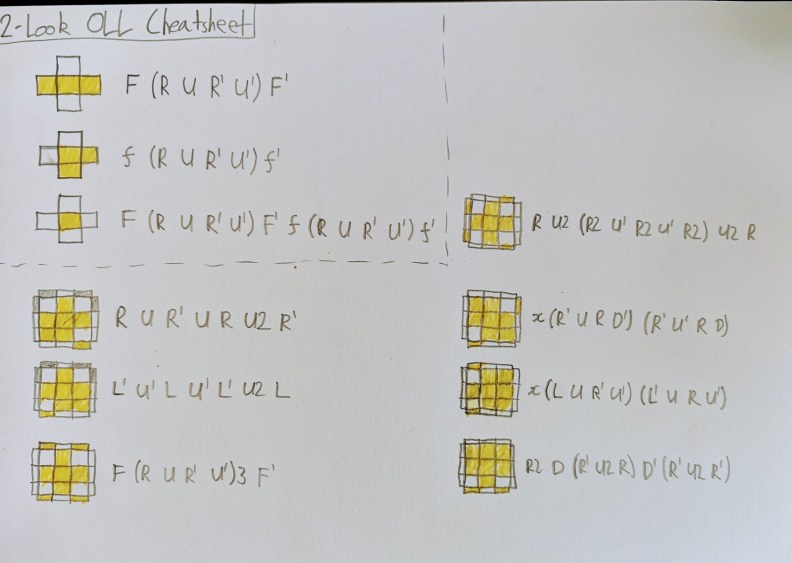 2-Look OLL Cheatsheet
F (R U R' U') F'
f (R U R' U') f'
F (R U R' U') F' f (R U R' U') f'
R U R' U R U2 R'
L' U' L U' L' U2 L
F (R U R' U')3 F'
R U2 (R2 U' R2 U' R2) U2 R
x (R' U R D') (R' U' R D)
x (L U R' U') (L' U R U')
R2 D (R' U2 R) D' (R' U2 R')